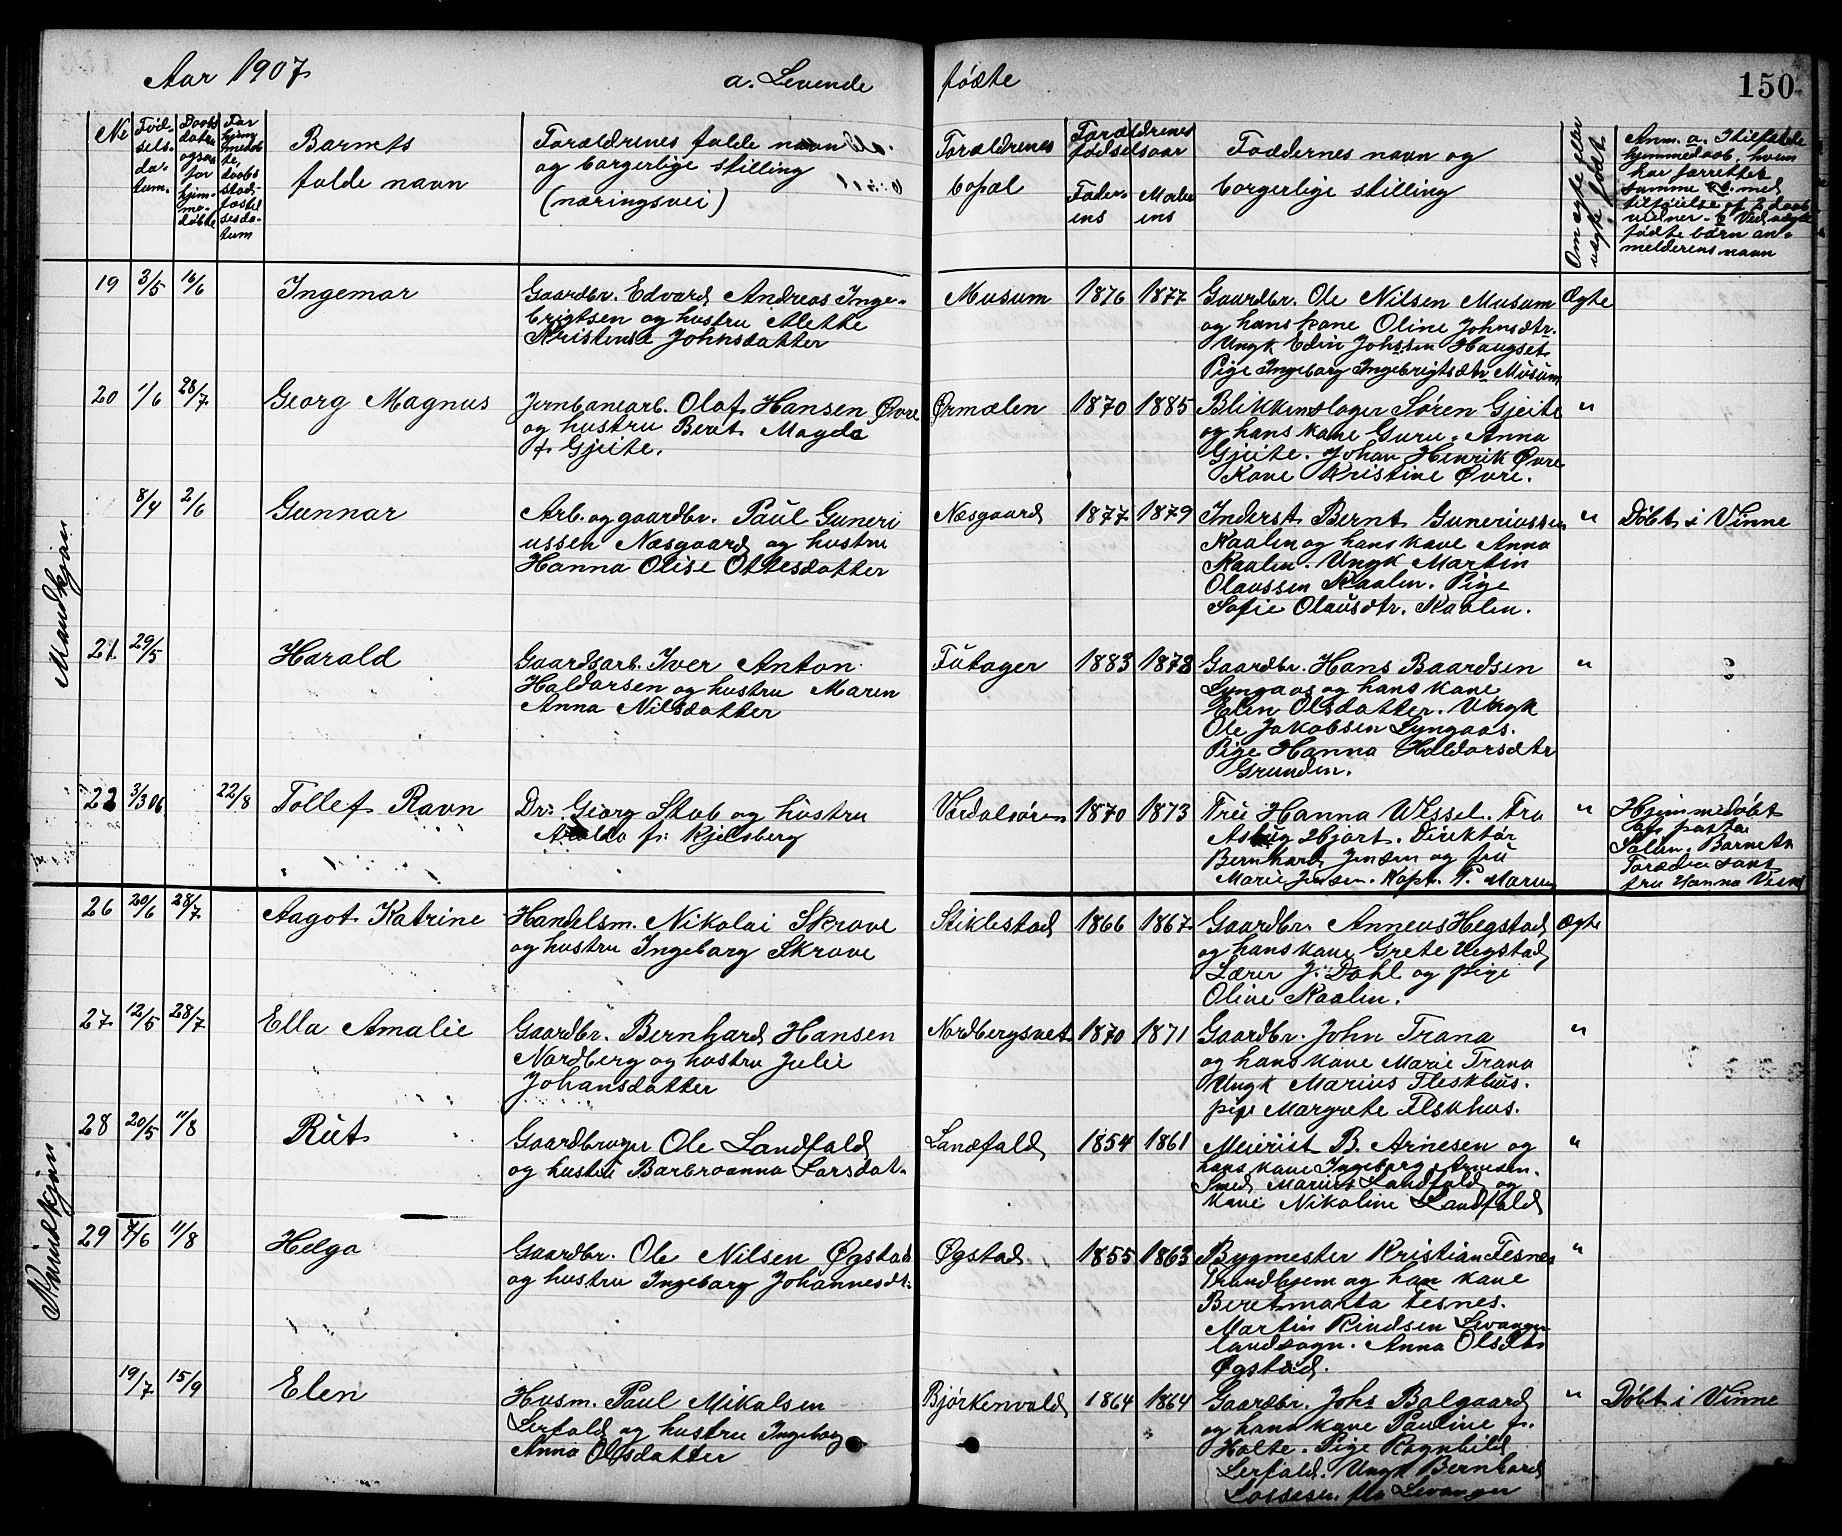 Aar 1907
a. Levende
fødte
150
No
Fød-
sels-
da-
tum.
Daabs
datum
ogsaa
for
hjem-
me-
døbte
For
hjem
medøb
te,
daabs
stad-
fæstel
sesda-
tum
Barnets
fulde navn
Forældrenes fulde navn
og borgerlige stilling
(næringsvei)
Forældrenes
bopæl
Forældrenes
fødselsaar
Fader-
ens
Moder
ens
Faddernes navn og
borgerlige stilling
Om egte eller
uegte født
Anm. a. I tilfælde
hjemmedaab, hvem
har forrettet
samme med
tilføielse af 2 daabs
vidner. b Ved uegte
fødte børn an-
melderens navn
Mandkjøn
19 3/5 16/6 Ingemar
Gaardbr. Edvard Andreas Inge-
brigtsen og hustru Alette
Kristense Johnsdatter
Musum 1876 1877
Gaardbr. Ole Nilsen Musum
og hans kone Oline Johnsdtr.
Ungk Edin Johssen Haugset
Pige Ingeborg Ingebrigtsdtr Musum
Ægte
20 1/6 28/7 Georg Magnus
Jernbanearb. Olaf Hansen Øvre
og hustru Berit Magda
f. Gjeite.
Ørmælen 1870 1885
Blikkenslager Søren Gjeite
og hans kone Guru-Anna
Gjeite. Johan Henrik Øvre
Kone Kristine Øvre.
"
8/4 2/6 Gunnar
Arb. og gaardbr. Paul Guneri
ussen Næsgaard og hustru
Hanna Olise Ottesdatter
Næsgaard 1877 1879
Inderst Bernt Guneriussen
Kaalen og hans kone Anna
Kaalen. Ungk Martin
Olaussen Kaalen. Pige
Sofie Olausdtr. Kaalen.
" Døbt i Vinne
21 29/5 Harald
Gaardsarb. Iver Anton
Haldorsen og hustru Maren
Anna Nilsdatter
Tutager 1883 1878
Gaardbr. Hans Baardsen
Lyngaas og hans kone
Elen Olsdatter. Ungk
Ole Jakobsen Lyngaas.
Pige Hanna Haldorsdtr
Grunden.
" "
22 3/3 06 22/8 Tollef Ravn
Dr. Georg Stab og hustru
f. Kjelsberg
Værdalsøren 1870 1873
Frue Hanna Wessel. Fru
Aslaug Hjort. Direktør
Bernhard Jensen og fru
Marie Jensen. Kapt. P.
" Hjemmedøbt
af pastor
Barnets
Forældre samt
fru Hanna
Kvindekjøn.
26 20/6 28/7 Aagot Katrine
Handelsm. Nikolai Skrove
og hustru Ingeborg Skrove
Stiklestad 1866 1867
Gaardbr. Anneus Hegstad
og hans kone Grete Hegstad,
Lærer J. Dahl og pige
Oline Kaalen.
Ægte
27 12/5 28/7 Ella Amalie
Gaardbr. Bernhard Hansen
Nordberg og hustru Julie
Johansdatter
Nordbergsvet 1870 1871
Gaardbr. John Trana
og hans kone Marie Trana
Ungk Marius Fleskhus.
pige Margrete Fleskhus.
"
28 20/5 11/8 Rut
Gaardbruger Ole Landfald
og hustru Barbroanna Larsdat.
Landfald 1854 1861
Meierist B. Arnesen og
hans kone Ingeborg Arnesen.
Smed Marius Landfald og
kone Nikoline Landfald
"
29 7/6 11/8 Helga
Gaardbr. Ole Nilsen Øgstad
og hustru Ingeborg Johannesdt.
Øgstad 1855 1863
Bygmester Kristian Fesnes
Trondhjem og han kone
Beretmarta Fesnes.
Martin Rindsen Levanger
landsogn. Anna Olsdtr
Øgstad.
"
19/7 15/9 Elen
Husm. Paul Mikalsen
Lerfald og hustru Ingeborg
Anna Olsdatter
Bjørkenvald 1864 1864
Gaardbr. Johs Balgaard
og hans kone Pauline f.
Holte. Pige Ragnhild
Lerfald. Ungk Bernhard
Lassesen. fra Levanger
" Døbt i Vinne